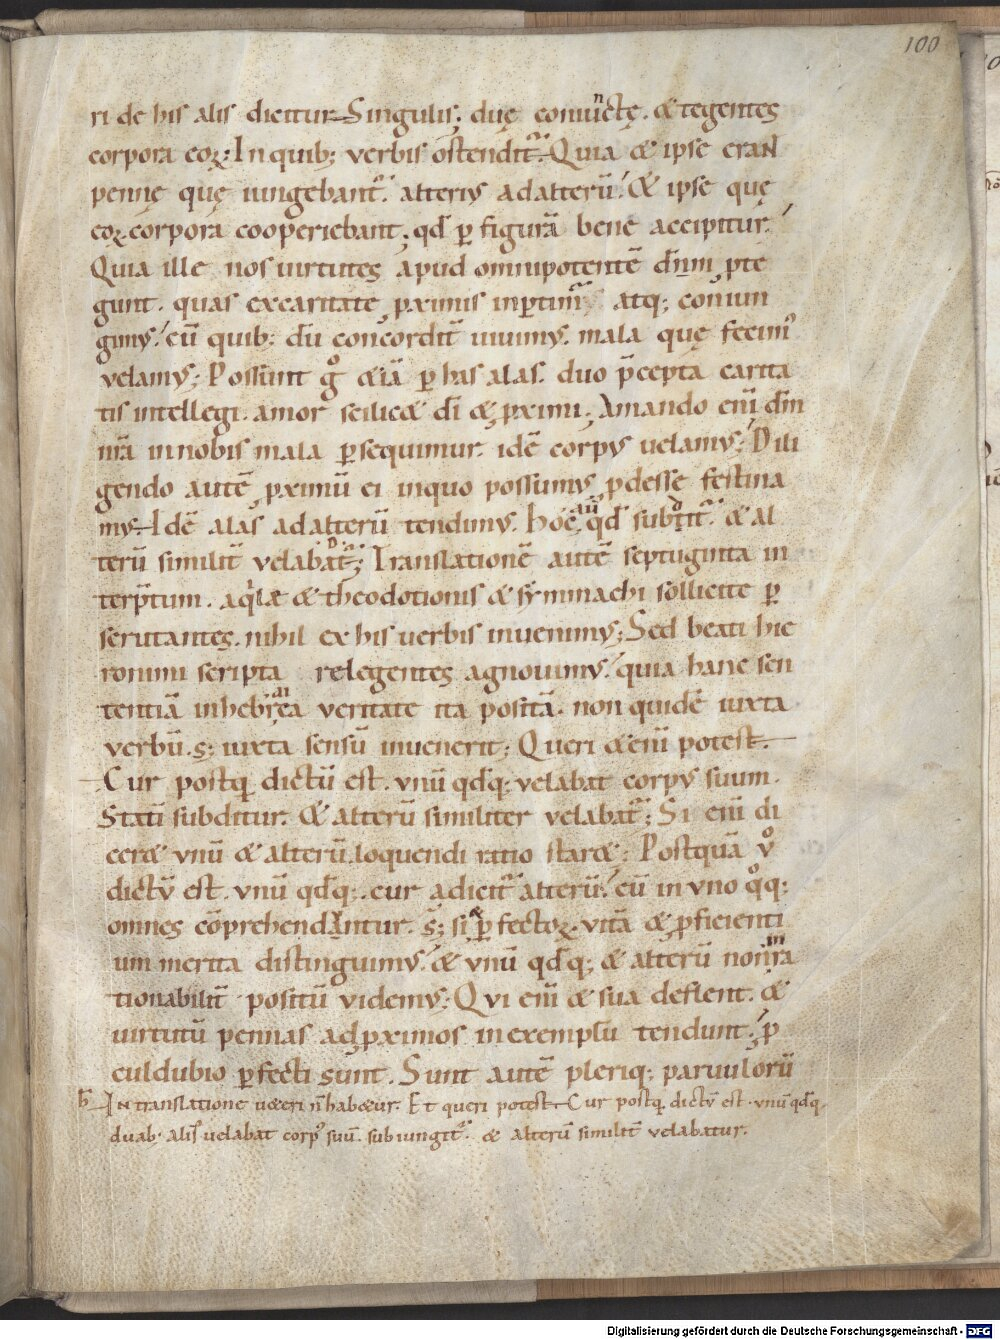 100
ri de his alis dicitur. Singulis; duę coniunctę. & tegentes
corpora eoꝝ; In quib; verbis ostendit᷑. Quia & ipsę erant
pennę quę iungebant᷑. alterius ad alterū; & ipsę quę
eoꝝ corpora cooperiebant; qđ ꝑ figurā bene accipitur.
Quia illę nos uirtutes apud omnipotentē dñm ꝓte
gunt. quas ex caritate ꝓximis inꝑtimur atq; coniun
gimus; cū quib; dū concordit̄ uiuimus. mala quę fecim᷒
velamus; Possunt gͦ & iā ꝑ has alas. duo p̄cepta carita
tis intellegi. amor scilic& dī & ꝓximi; Amando eni dm̄
nr̄a in nobis mala ꝑsequimur. idē corpus velamus; Dili
gendo autē ꝓximū ei in quo possumus ꝓdesse festina
mus. Idē alas ad alterū tendimus. Hoc aū qđ subditur᷑. & al
terū similit̄ velabatur᷑; Translationē autē septuginta in
terp̄tum. aqlae & theodotionis & symmachi sollicite ꝑ
scrutantes. nihil ex his verbis inuenimus; Sed beati hie
ronimi scripta relegentes agnouimus; quia hanc sen
tentiā in hebrea veritate ita positā. non quidē iuxta
verbū. s; iuxta sensū inuenerit; Queri & enī potest.
Cur postꝗ dictū est. vnū qđq; velabat corpus suum.
Statī subditur. & alterū similiter velabat᷑; Si enī di
cer& vnū & alterū. loquendi ratio star&; Postquā vͦ
dictū est. vnū qđq;. cur adicit᷑ alterū; cū in vno qͦq;
omnes cōprehendantur. s; si ꝑfectoꝝ vitā & ꝓficienti
um merita distinguimus; & vnū qđq; & alterū non ira
tionabilit̄ positū videmus; Qui enī & sua deflent. &
uirtutū pennas ad ꝓximos in exemplū tendunt; ꝓ
culdubio ꝑfecti sunt. Sunt autē pleriq; paruulorū
ħ. In translatione u&eri ñ hab&ur. Et queri potest. Cur postꝗ dictū est. vnū qđq,
duab᷒ alis velabat corp᷒ suū. subiungit᷑. & alterū similit̄ velabatur.
Digitalisierung gefördert durch die Deutsche Forschungsgemeinschaft - DFG